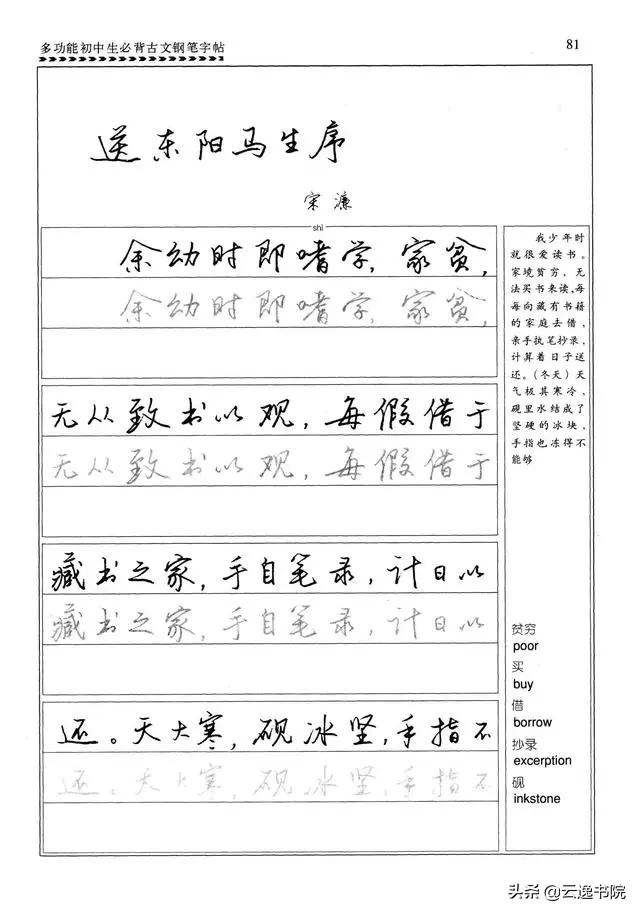 多功能初中生必背古文钢笔字帖
81
送东阳马生序
宋濂
shì
余幼时即嗜学，家贫，
余幼时即嗜学，家贫，
无从致书以观，每假借于
无从致书以观，每假借于
藏书之家，手自笔录，计日以
藏书之家，手自笔录，计日以
还。天大寒，砚冰坚，手指不
还。天大寒，砚冰坚，手指不
我少年时
就很爱读书。
家境贫穷，无
法买书来读，每
每向藏有书籍
的家庭去借，
亲手执笔抄录，
计算着日子送
还。（冬天）天
气极其寒冷，
砚里水结成了
坚硬的冰块，
手指也冻得不
能够
贫穷
poor
买
buy
借
borrow
抄录
excerption
砚
inkstone
头条 @云逸书院